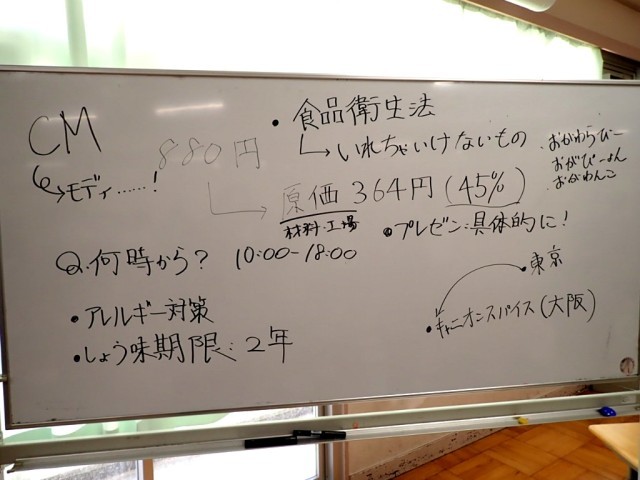 CM
↳モディ……!
880円
・食品衛生法
↳いれちゃいけないもの
・おがわらびー
・おがぴーよん
・おがわんこ
原価 364円 (45%)
材料・工場
・プレゼン:具体的に!
Q.何時から? 10:00-18:00
・東京
・キャニオンスパイス(大阪)
・アレルギー対策
・しょう味期限:2年